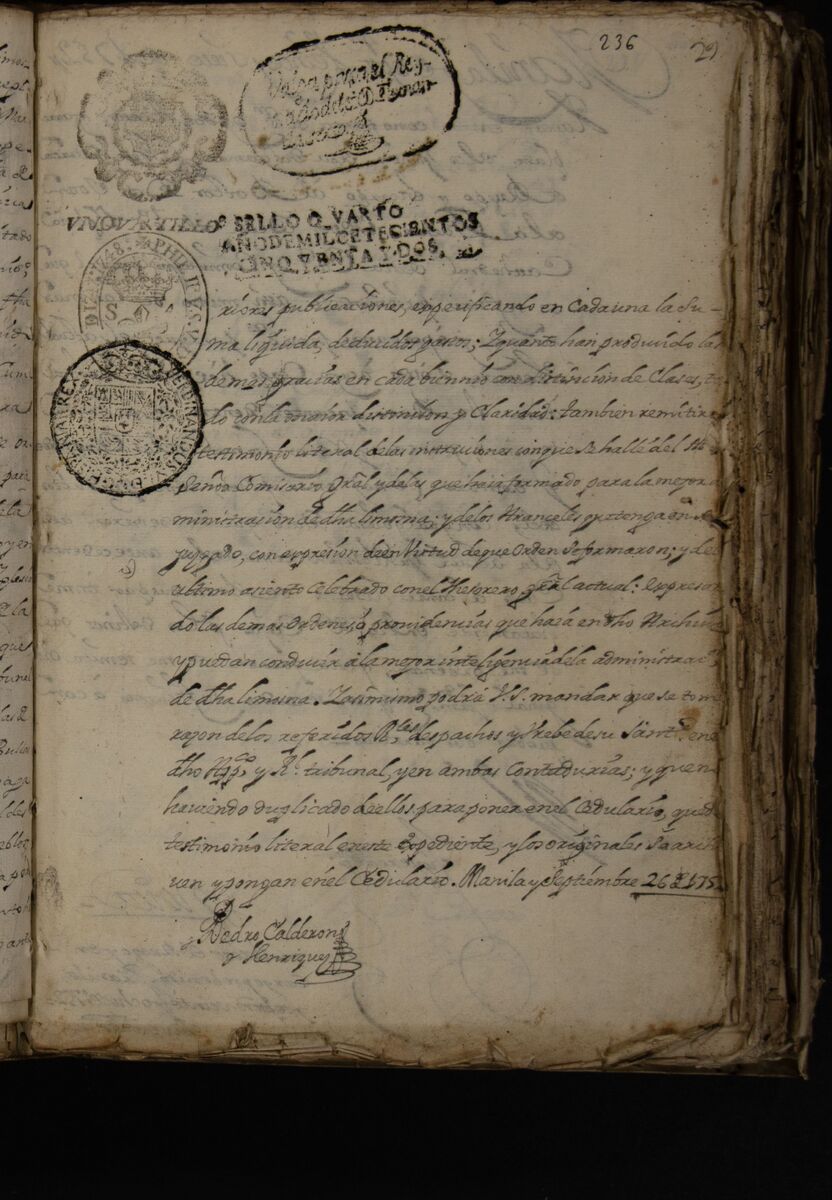 236
29
Valga para el Rey-
nado del S. D. Fernan
do sexto
VNQVARTILLO
SELLO QVARTO
AÑODEMILSETECIENTOS
CINQVENTA Y DOS.
riores publicaciones, expecificando en Cada una la Su-
ma liquida, deducidos gastos, Y quanto han producido las
demas gracias en cada biennio con distincion de Clases, to
do con la maior distincion y Claridad: tambien remitira
testimonio literal de las instruciones con que Se halle del
Señor Comisario Gral y delas que haia formado para la mejor a
ministracion de dha limosna; y delos Aranceles qe tenga en
juzgado, con expresion de en Virtud de que Orden Se formaron; y del
ultimo asiento Celebrado con el Thesorero gral actual: expresan
do las demas Ordenes, ò providencias que haia en dho Archivo
y puedan conducir à la mejor inteligencia dela administrac.
de dha limosna. Y asimismo podrà V.S. mandar que se tome
razon delos referidos Rs. despachos y Brebe de su Santd. en e
dho y Rl. tribunal, y en ambas Contadurias; y que
haciendo duplicado de ellos para poner en el Cedulario, quede
testimonio literal en este Expediente, y los originales Se archi
ven y pongan en el Cedulario. Manila y Septiembre 26 de 175
Pedro Calderon
y Henriquez